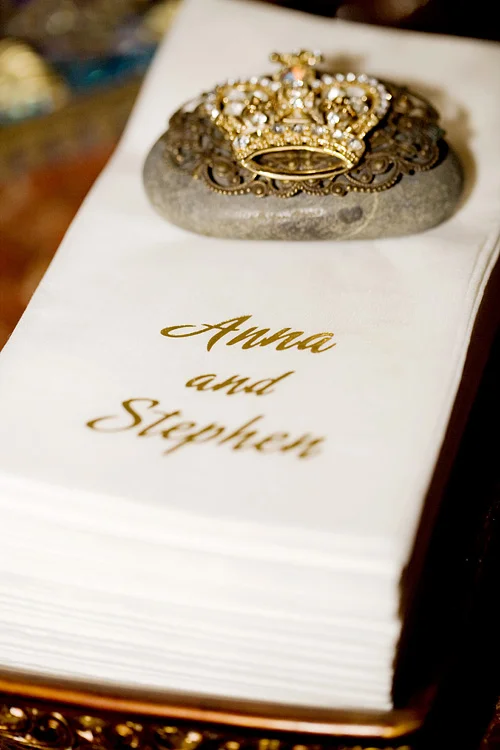 Anna
and
Stephen